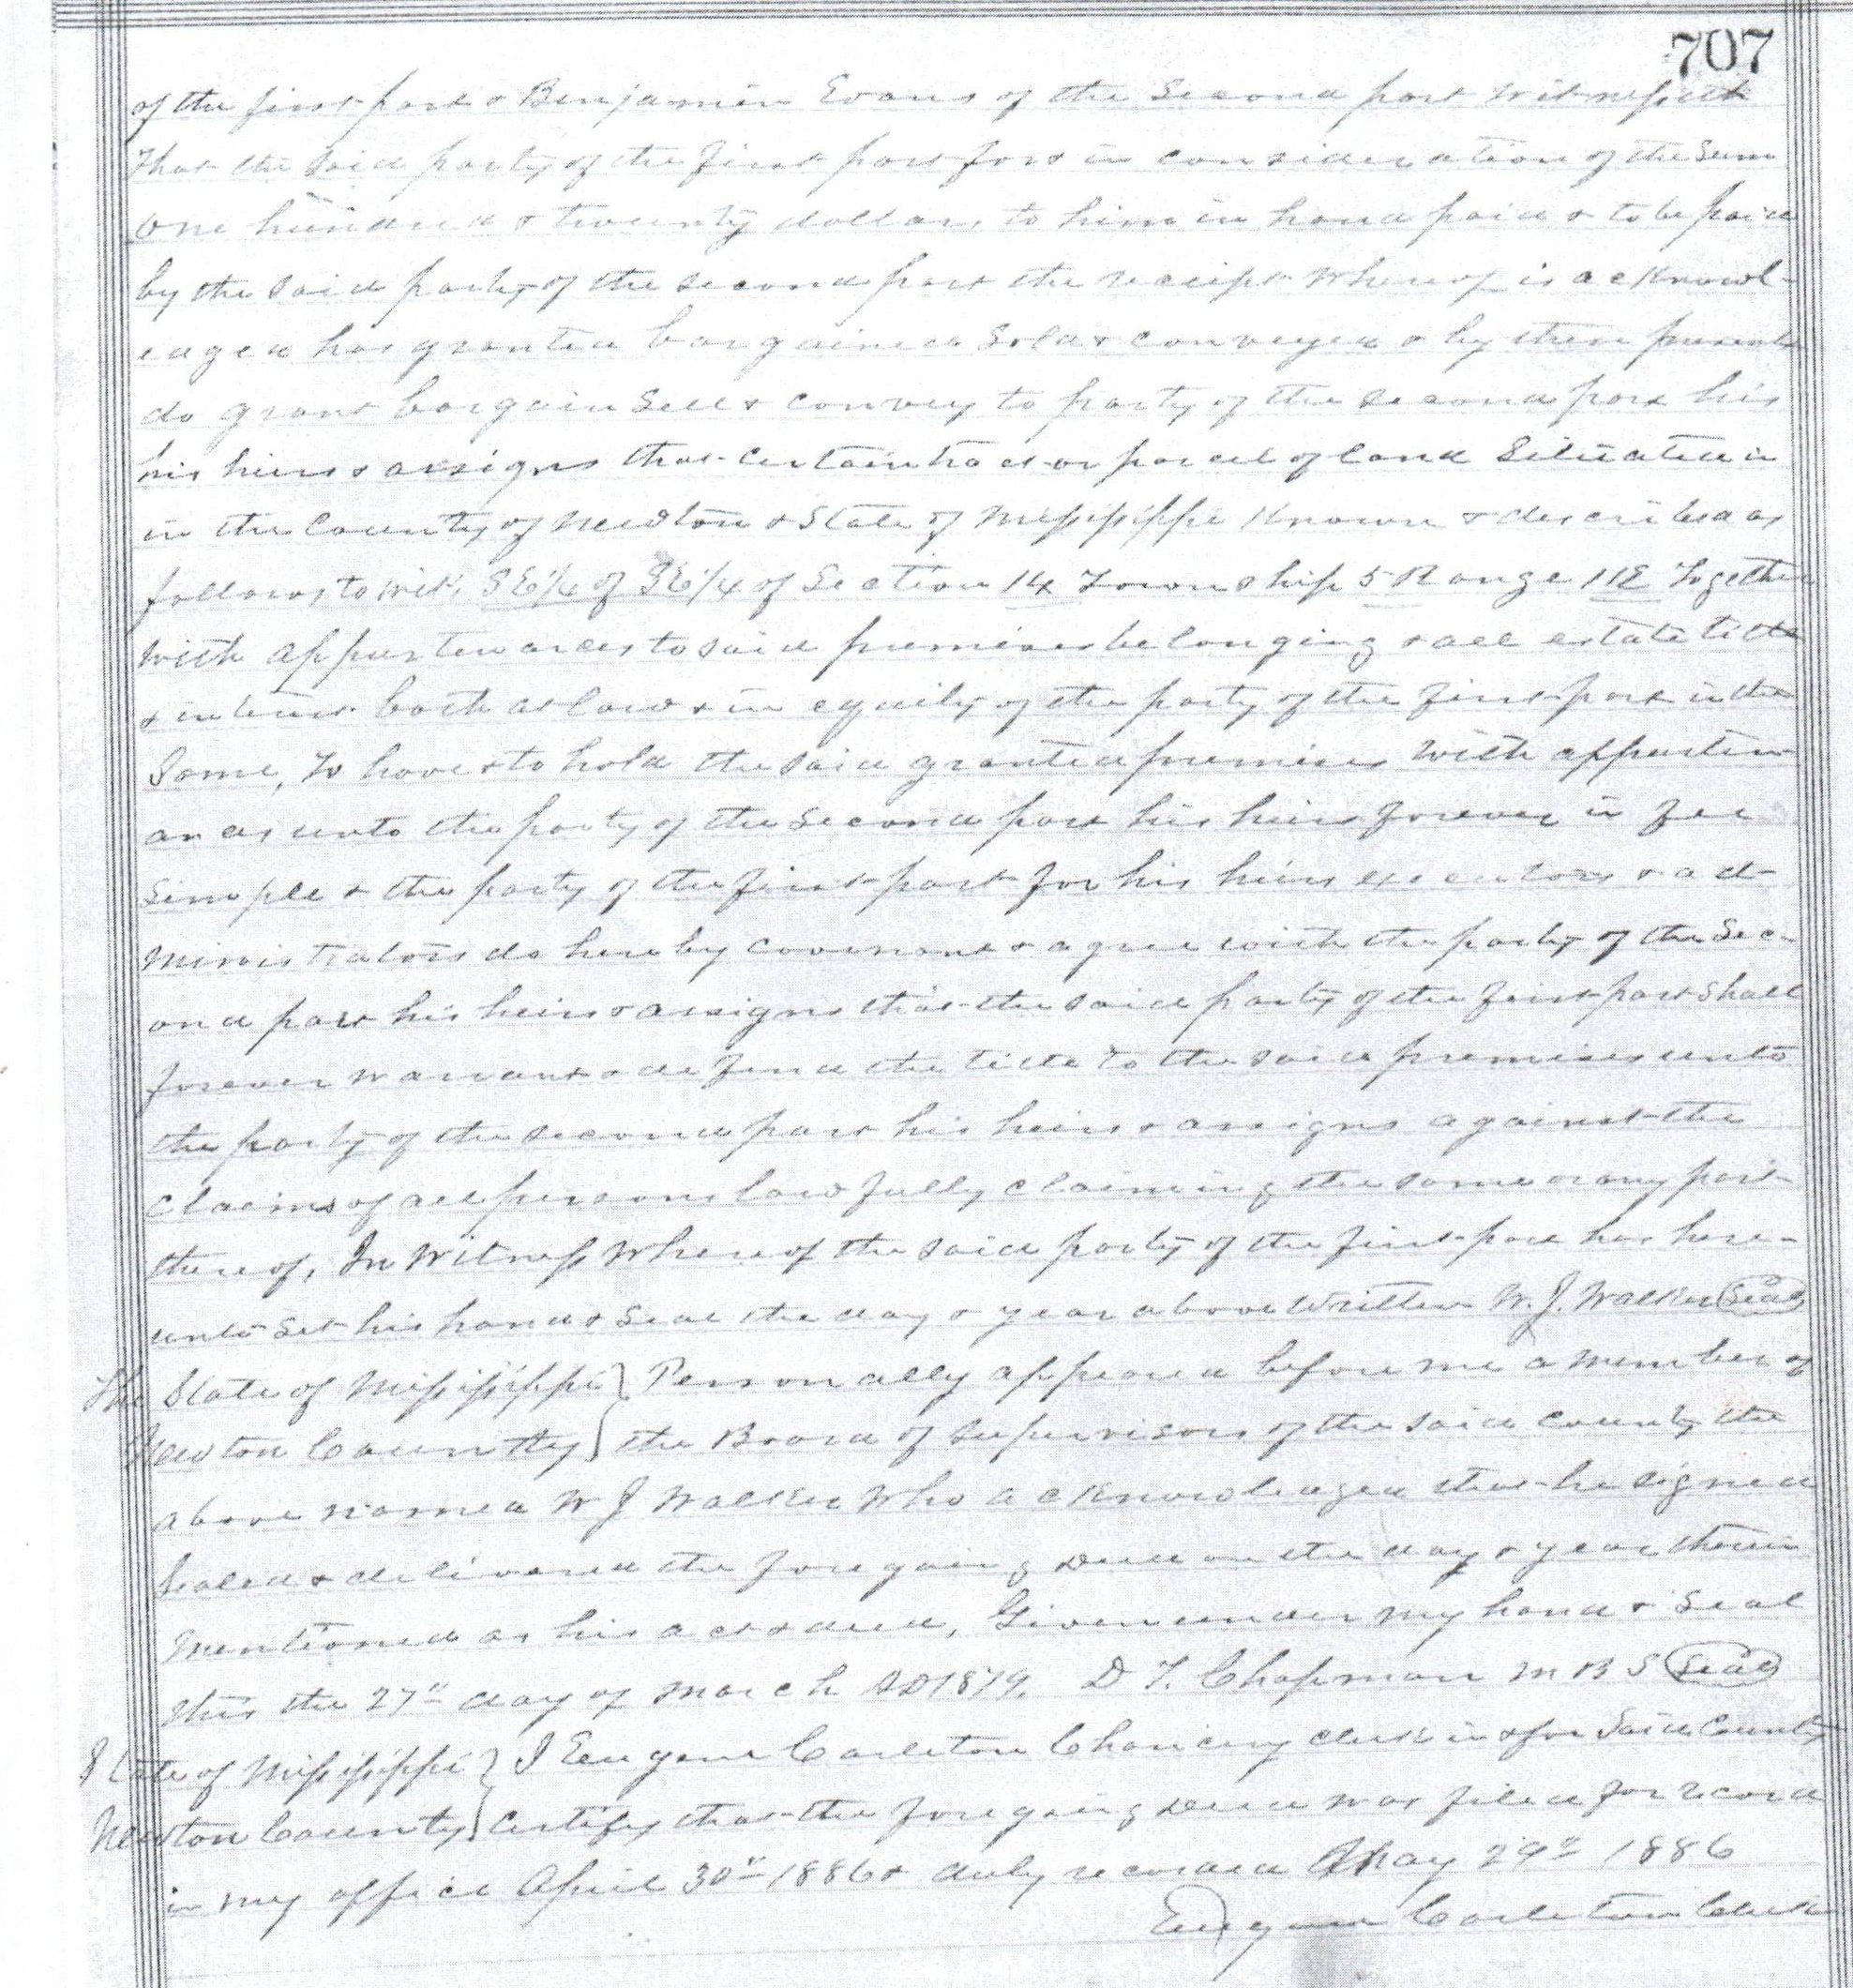 707
of the first part & Benjamin Evans of the Second part Witnesseth
That the said party of the first part for & in consideration of the Sum
One hundred & twenty dollars to him in hand paid & to be paid
by the said party of the second part the receipt whereof is acknowl-
edged has granted bargained Sold & conveyed & by these presents
do grant bargain Sell & convey to party of the second part his
his heirs & assigns that certain tract or parcel of land Situated in
in the County of Newton & State of Mississippi Known & described as
follows to wit, SE 1/4 of SE 1/4 of Section 14 Township 5 Range 11E Together
With appurtenances to said premises belonging & all estate title
& interest both at law & in equity of the party of the first part in the
Same, To have & to hold the said granted premises With appurten
ances unto the party of the Second part his heirs forever in fee
Simple & the party of the first part for his heirs executors & ad-
ministrators do hereby covenant & agree with the party of the Sec-
ond part his heirs & assigns that the said party of the first part Shall
forever warrant & defend the title to the said premises unto
the party of the second part his heirs & assigns against the
claims of all persons lawfully claiming the same or any part
thereof, In Witness Whereof the said party of the first part has here-
unto Set his hand & Seal the day & year above Written W. J. Walker Seal
The State of Mississippi } Personally appeared before me a member of
Newton County } the Board of Supervisors of the said County the
above named W J Walker Who acknowledged that he signed
Sealed & delivered the foregoing Deed on the day & year therein
mentioned as his act & deed, Given under my hand & Seal
this the 27" day of March AD 1879. D T. Chapman M B S Seal
State of Mississippi } I Eugene Carleton Chancery clerk in & for Said County
Newton County } certify that the foregoing Deed was filed for record
in my office April 30" 1886 & duly recorded May 29" 1886
Eugene Carleton Clerk